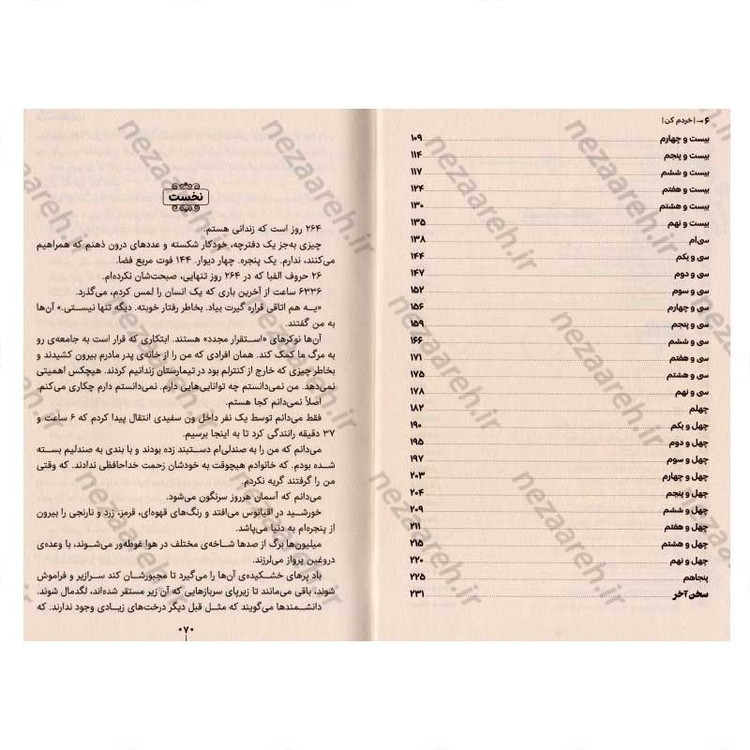 ۶ → | خردم کن |
بیست و چهارم ۱۰۹
بیست و پنجم ۱۱۴
بیست و ششم ۱۱۷
بیست و هفتم ۱۲۴
بیست و هشتم ۱۳۰
بیست و نهم ۱۳۵
سی‌ام ۱۳۸
سی و یکم ۱۴۴
سی و دوم ۱۴۷
سی و سوم ۱۵۲
سی و چهارم ۱۵۶
سی و پنجم ۱۵۹
سی و ششم ۱۶۶
سی و هفتم ۱۷۱
سی و هشتم ۱۷۵
سی و نهم ۱۷۸
چهلم ۱۸۲
چهل و یکم ۱۹۰
چهل و دوم ۱۹۵
چهل و سوم ۱۹۷
چهل و چهارم ۲۰۳
چهل و پنجم ۲۰۴
چهل و ششم ۲۰۹
چهل و هفتم ۲۱۱
چهل و هشتم ۲۱۵
چهل و نهم ۲۲۰
پنجاهم ۲۲۵
سخن آخر ۲۳۱
نخست
۲۶۴ روز است که زندانی هستم.
چیزی به‌جز یک دفترچه، خودکار شکسته و عددهای درون ذهنم که همراهیم
می‌کنند، ندارم. یک پنجره. چهار دیوار. ۱۴۴ فوت مربع فضا.
۲۶ حروف الفبا که در ۲۶۴ روز تنهایی، صبحت‌شان نکرده‌ام.
۶۳۳۶ ساعت از آخرین باری که یک انسان را لمس کردم، می‌گذرد.
«یه هم اتاقی قراره گیرت بیاد. بخاطر رفتار خوبته. دیگه تنها نیستی.» آن‌ها
به من گفتند.
آن‌ها نوکرهای «استقرار مجدد» هستند. ابتکاری که قرار است به جامعه‌ی رو
به مرگ ما کمک کند. همان افرادی که من را از خانه‌ی پدر مادرم بیرون کشیدند و
بخاطر چیزی که خارج از کنترلم بود در تیمارستان زندانیم کردند. هیچکس اهمیتی
نمی‌دهد. من نمی‌دانستم چه توانایی‌هایی دارم. نمی‌دانستم دارم چکاری می‌کنم.
اصلاً نمی‌دانم کجا هستم.
فقط می‌دانم توسط یک نفر داخل ون سفیدی انتقال پیدا کردم که ۶ ساعت و
۳۷ دقیقه رانندگی کرد تا به اینجا برسیم.
می‌دانم که من را به صندلی‌ام دستبند زده بودند و با بندی به صندلیم بسته
شده بودم. که خانوادم هیچوقت به خودشان زحمت خداحافظی ندادند. که وقتی
من را گرفتند گریه نکردم.
می‌دانم که آسمان هرروز سرنگون می‌شود.
خورشید در اقیانوس می‌افتد و رنگ‌های قهوه‌ای، قرمز، زرد و نارنجی را بیرون
از پنجره‌ام به دنیا می‌پاشد.
میلیون‌ها برگ از صدها شاخه‌ی مختلف در هوا غوطه‌ور می‌شوند، با وعده‌ی
دروغین پرواز می‌لرزند.
باد پرهای خشکیده‌ی آن‌ها را می‌گیرد تا مجبورشان کند سرازیر و فراموش
شوند، باقی می‌مانند تا زیرپای سربازهایی که آن زیر مستقر شده‌اند، لگدمال شوند.
دانشمندها می‌گویند که مثل قبل دیگر درخت‌های زیادی وجود ندارند. که
۰۷۰
nezaareh.ir
nezaareh.ir
nezaareh.ir
nezaareh.ir
nezaareh.ir
nezaareh.ir
nezaareh.ir
nezaareh.ir
nezaareh.ir